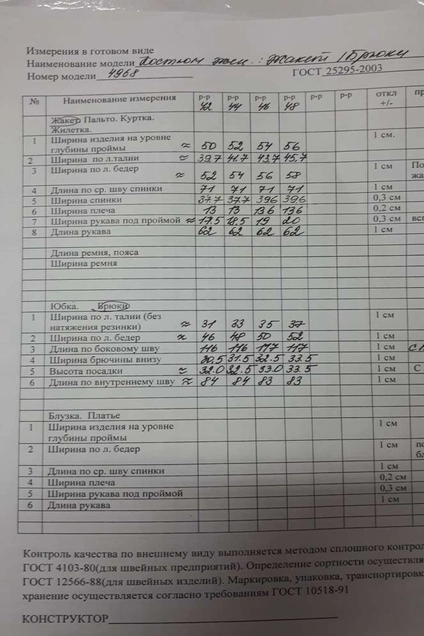 Измерения в готовом виде
Наименование модели Костюм жен.: Жакет / Брюки
Номер модели 4968 ГОСТ 25295-2003
№ Наименование измерения р-р 42 р-р 44 р-р 46 р-р 48 р-р р-р откл +/-
Жакет Пальто. Куртка.
Жилетка.
1 Ширина изделия на уровне глубины проймы ≈ 50 52 54 56 1 см.
2 Ширина по л.талии ≈ 39.7 41.7 43.7 45.7 1 см
3 Ширина по л. бедер ≈ 52 54 56 58 1 см
4 Длина по ср. шву спинки 71 71 71 71 1 см
5 Ширина спинки 37.7 37.7 39.6 39.6 0,3 см
6 Ширина плеча 13 13 13.6 13.6 0,2 см
7 Ширина рукава под проймой ≈ 17.5 18.5 19 20 0,3 см
8 Длина рукава 62 62 62 62 1 см
Длина ремня, пояса
Ширина ремня
Юбка. Брюки
1 Ширина по л. талии (без натяжения резинки) ≈ 31 33 35 37 1 см
2 Ширина по л. бедер ≈ 46 48 50 52 1 см
3 Длина по боковому шву 116 116 117 117 1 см
4 Ширина брючины внизу 30.5 31.5 32.5 33.5 1 см
5 Высота посадки ≈ 32.0 32.5 33.0 33.5 1 см С
6 Длина по внутреннему шву ≈ 84 84 83 83 1 см
Блузка. Платье
1 Ширина изделия на уровне глубины проймы 1 см
2 Ширина по л. бедер 1 см
3 Длина по ср. шву спинки 1 см
4 Ширина плеча 0,2 см
5 Ширина рукава под проймой 0,3 см
6 Длина рукава 1 см
Контроль качества по внешнему виду выполняется методом сплошного контрол
ГОСТ 4103-80(для швейных предприятий). Определение сортности осуществля
ГОСТ 12566-88(для швейных изделий). Маркировка, упаковка, транспортиров
хранение осуществляется согласно требованиям ГОСТ 10518-91
КОНСТРУКТОР